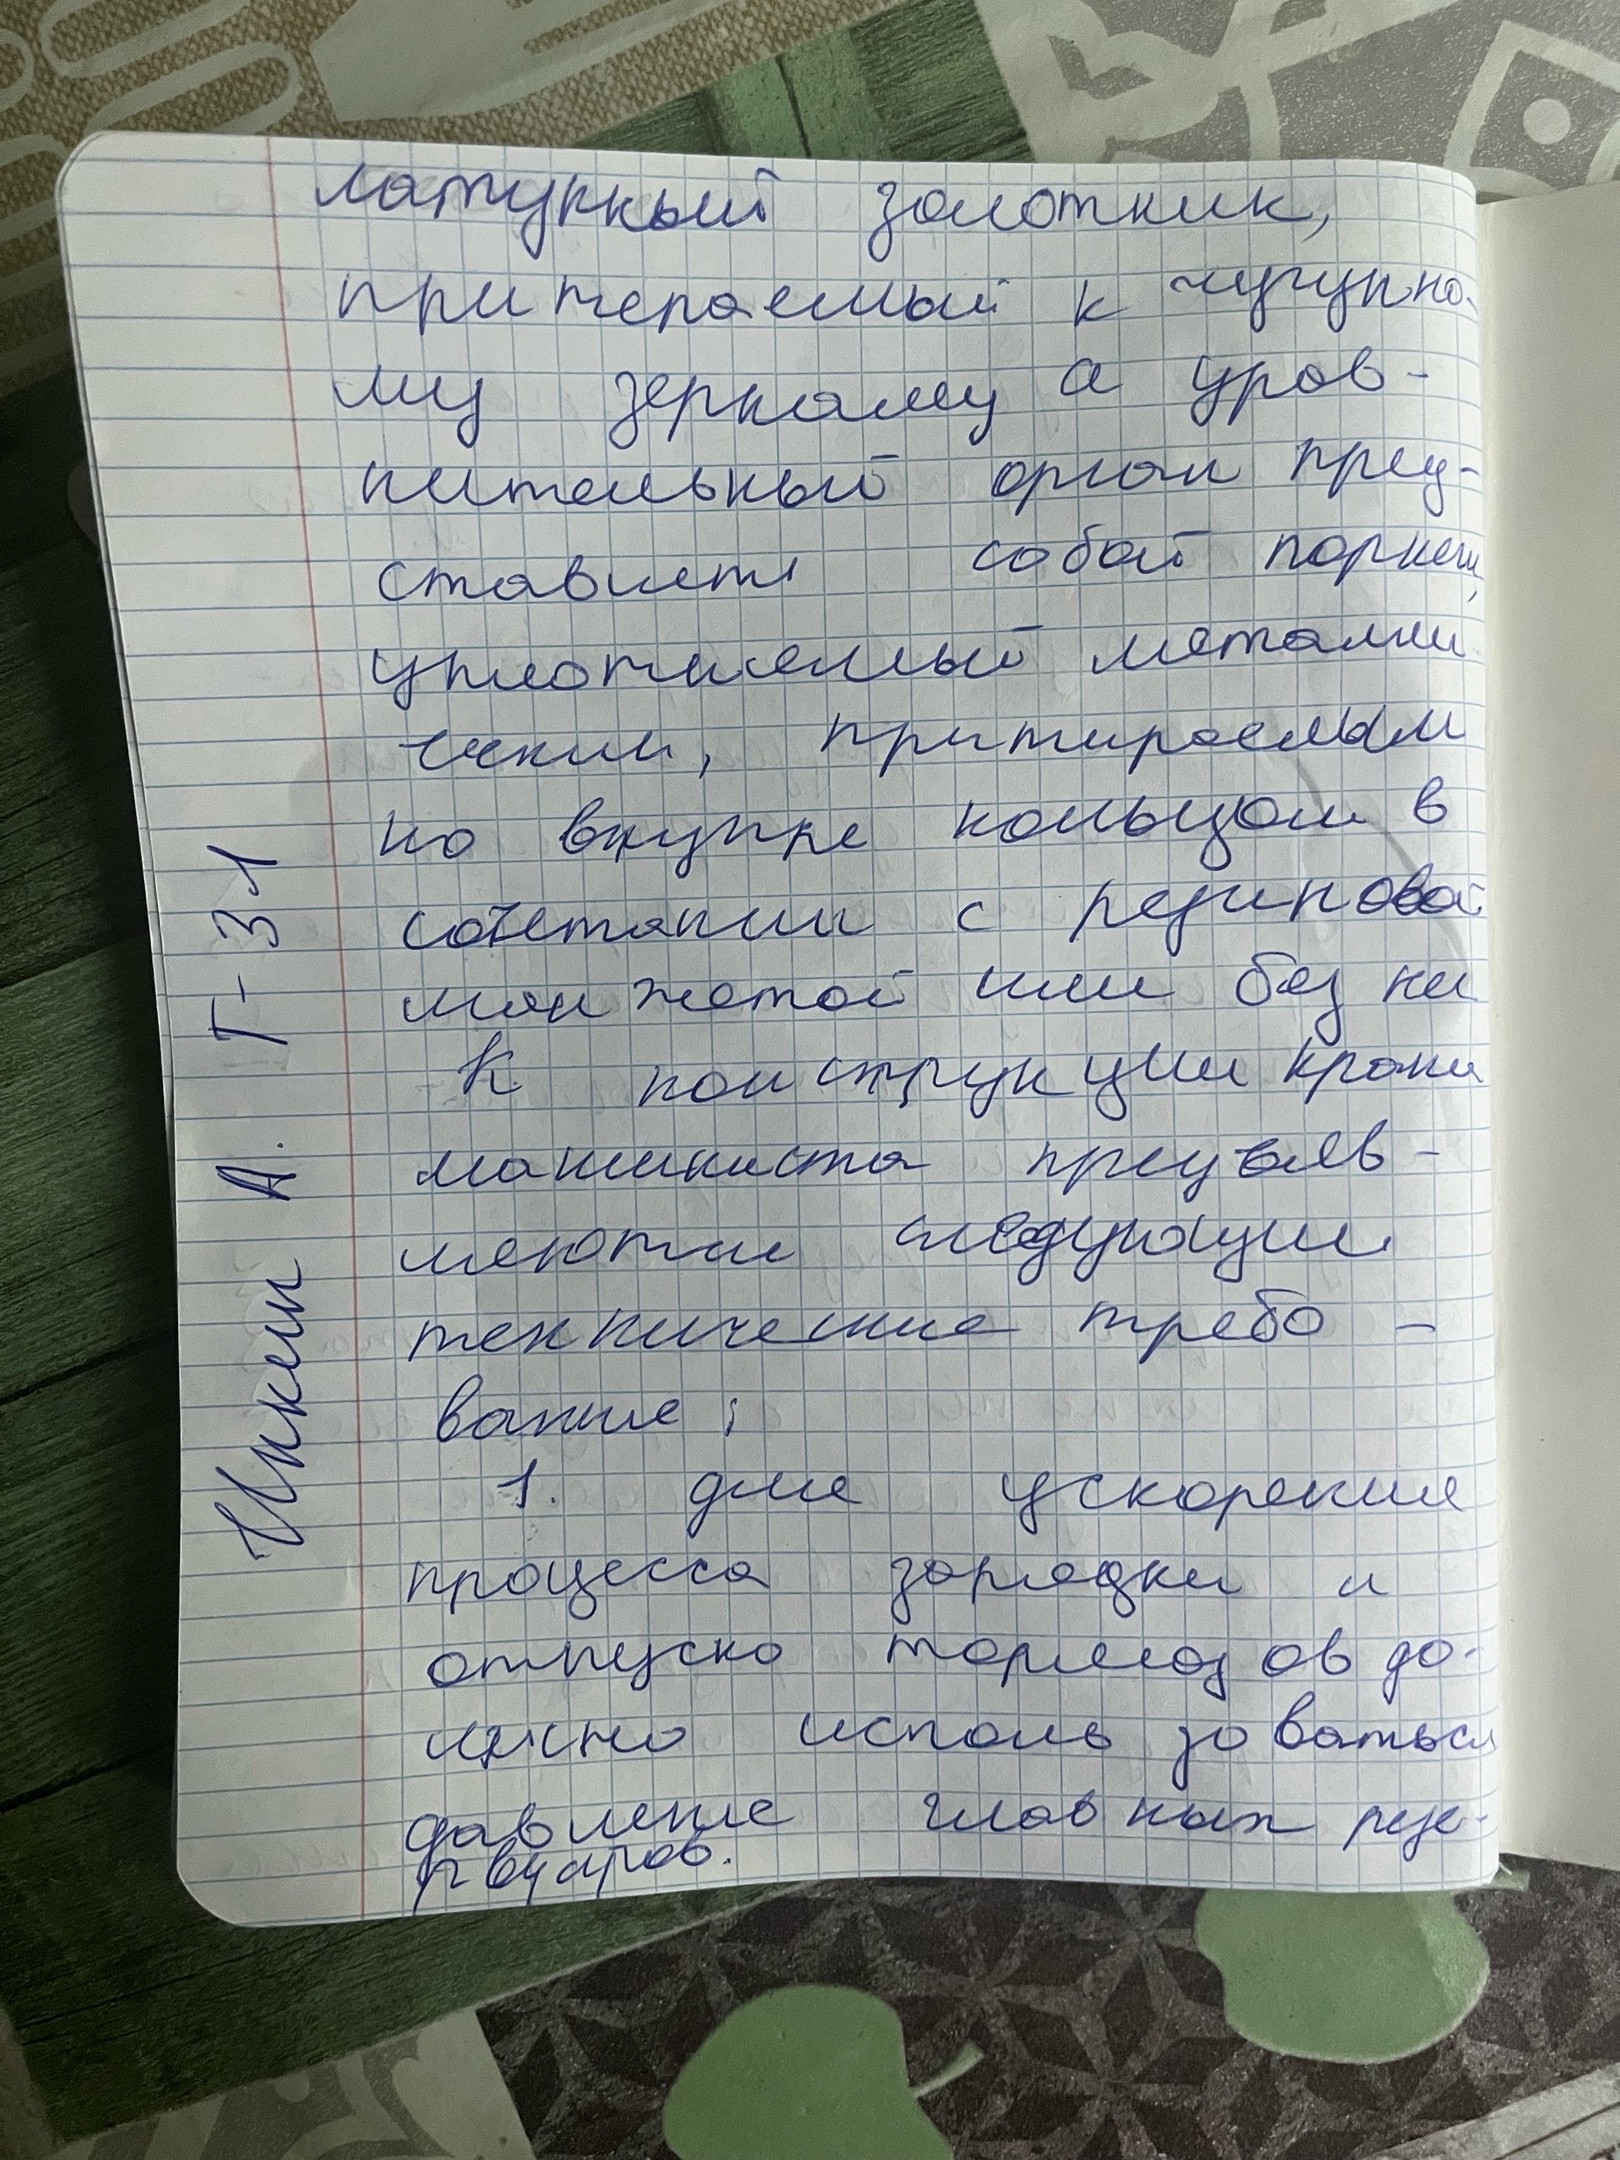 латунный золотник,
притераемый к чугунно-
му зеркалу а урав-
нительный орган пред-
ставляет собой поршень,
уплотняемый металли
ческим, притираемым
по втулке кольцом в
сочетании с резиновой
манжетой или без не
К конструкции крана
машиниста предъяв-
ляются следующие
технические требо-
вание:
1. для ускорения
процесса зарядки и
отпуска тормозов до-
лжно использоваться
давление главных резе-
рвуаров.
А. Т-31